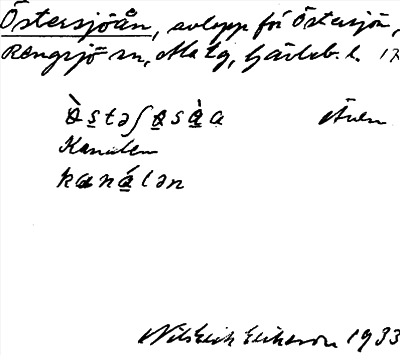 Östersjöån, avlopp för Östersjön,
Rengsjö sn, Alfta tg, Gävleb. l. 17
ö̀stəʃøsàa Även
Kanalen
kanálən
Nils Erik Eliasson 1933